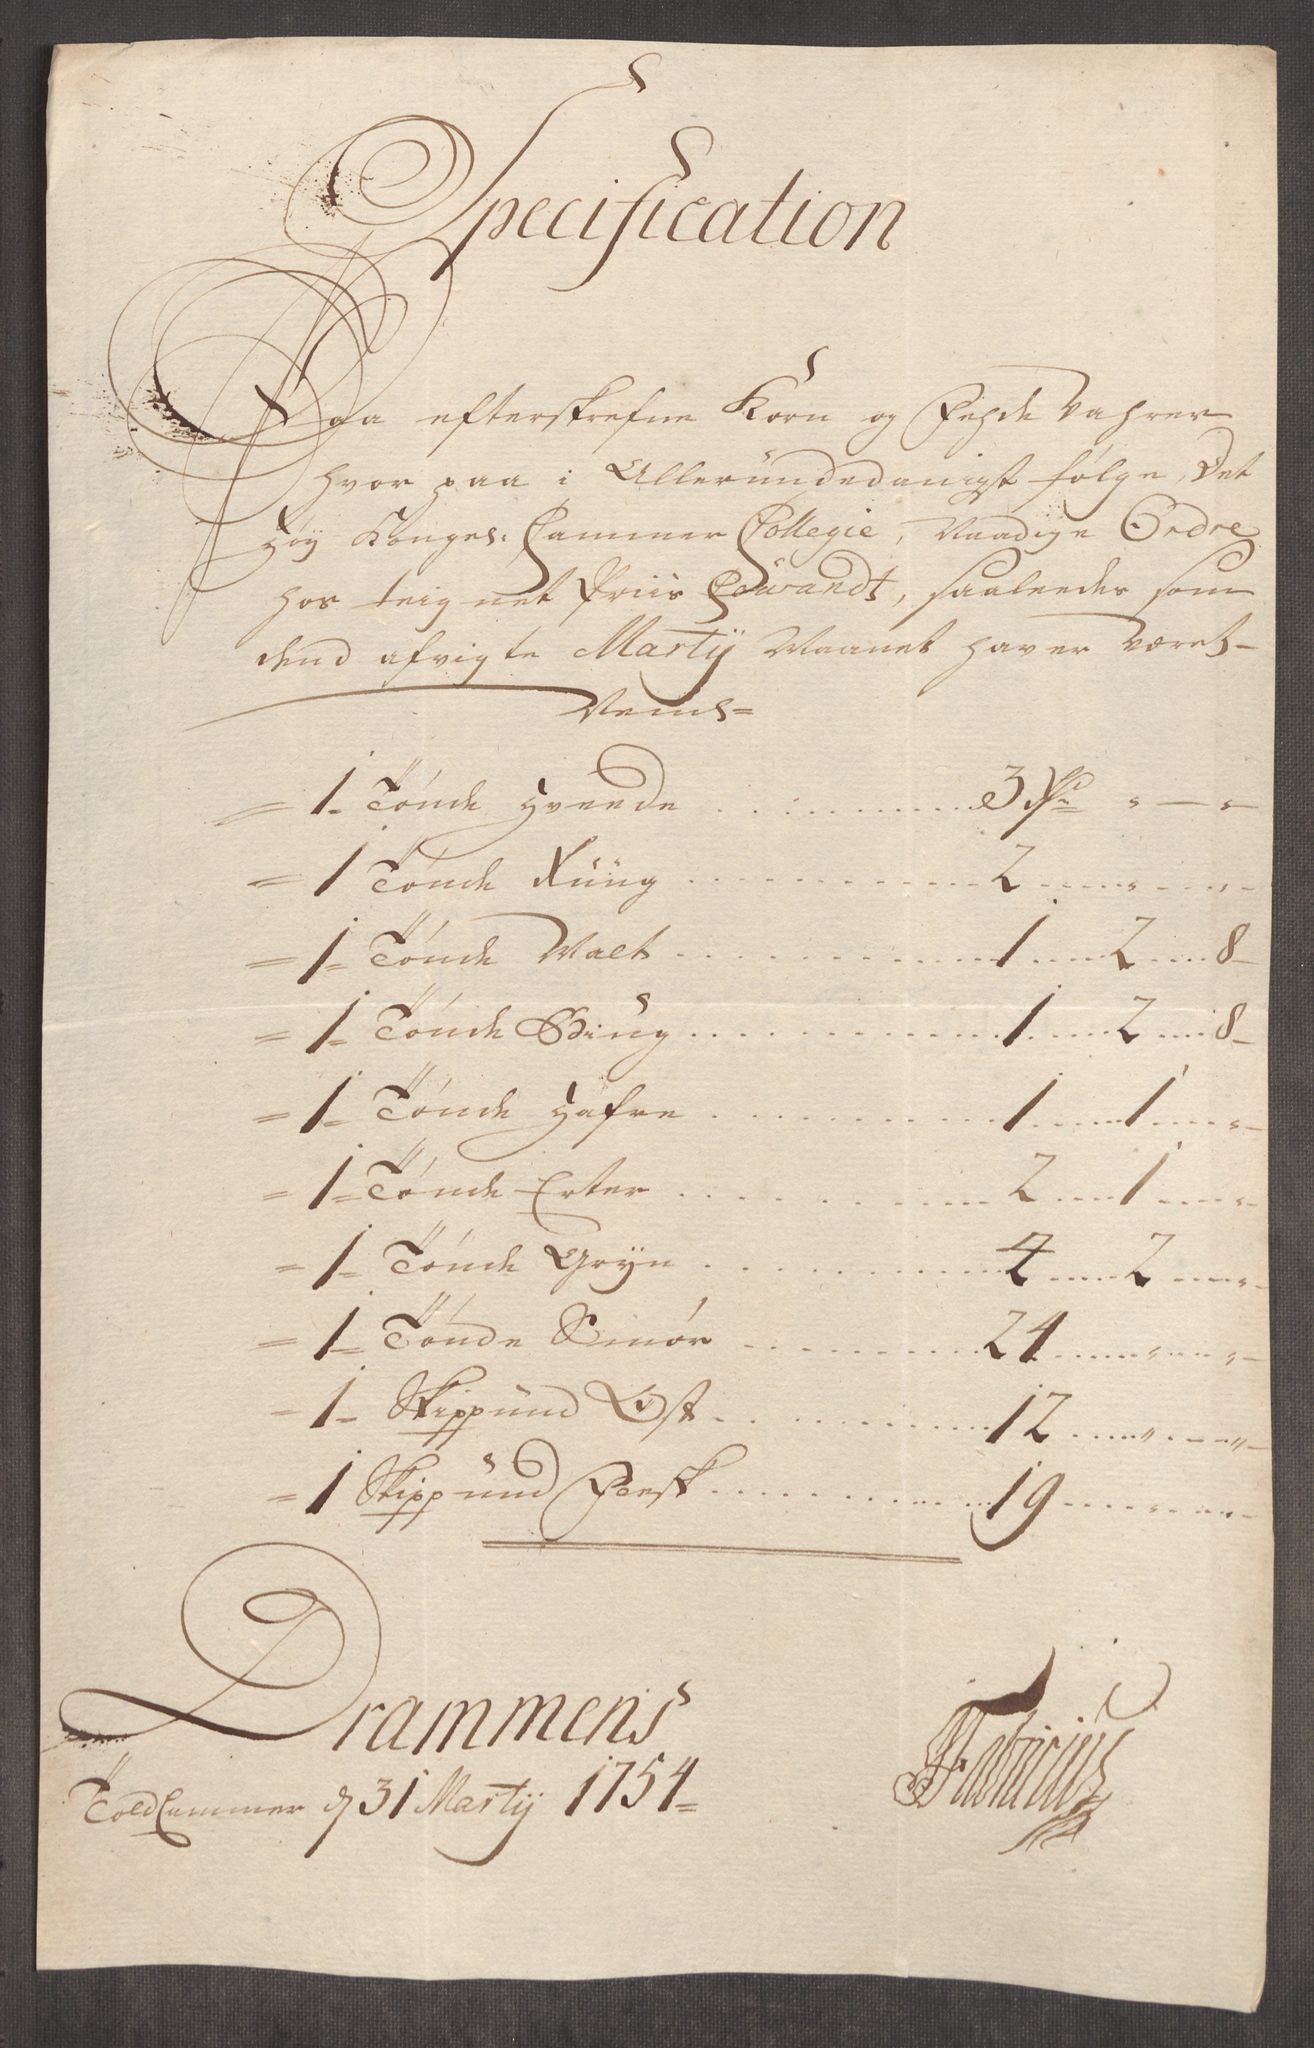 Specification
Paa efterskrefne Korn og Fehde Vahrer
hvor paa i Alleründedanigst følge, Det
Høy Konges: Cammer Collegie, Naadige Ordre
hos teignet Priis Courandt, saaleedes som
dend afvigte Martij Maanet haver Været
Neml=
= 1 Tønde Hveede 3 Rd " — "
= 1 Tønde Rüüg 2 " "
= 1 Tønde Malt 1 2 8
= 1 Tønde Biüg 1 2 8
= 1 Tønde Hafre 1 1 "
= 1 Tønde Erter 2 1 "
= 1 Tønde Gryn 4 2 "
= 1 Tønde Smør 24 " "
= 1 Skippünd Ost 12 " "
= 1 Skippünd Flesk 19 " "
Drammens
ToldCammer d 31 Martij 1754=
Fabricius